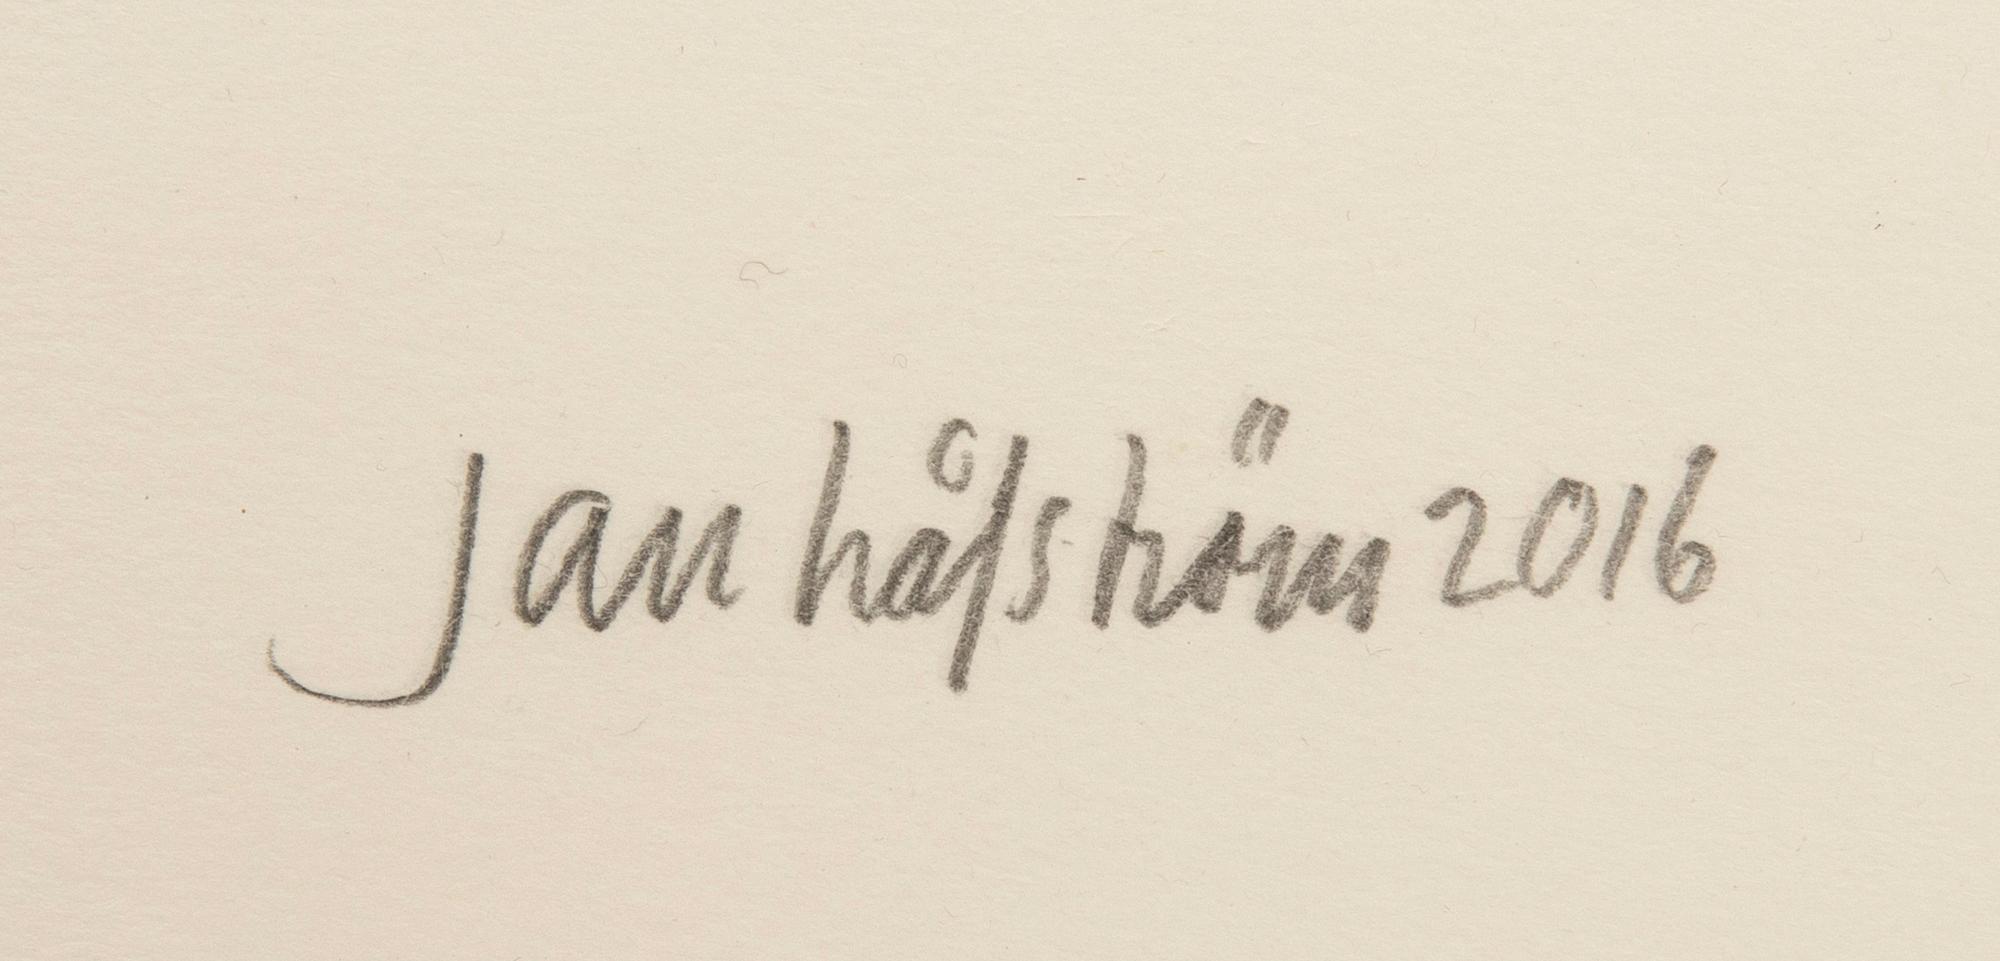 Jan håfström 2016